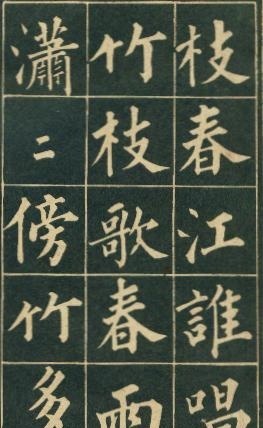 枝春江誰唱
竹枝歌春雨
瀟二傍竹多